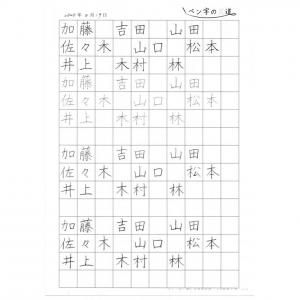 ペン字の道
加藤 吉田 山田
佐々木 山口 松本
井上 木村 林
加藤 吉田 山田
佐々木 山口 松本
井上 木村 林
加藤 吉田 山田
佐々木 山口 松本
井上 木村 林
加藤 吉田 山田
佐々木 山口 松本
井上 木村 林